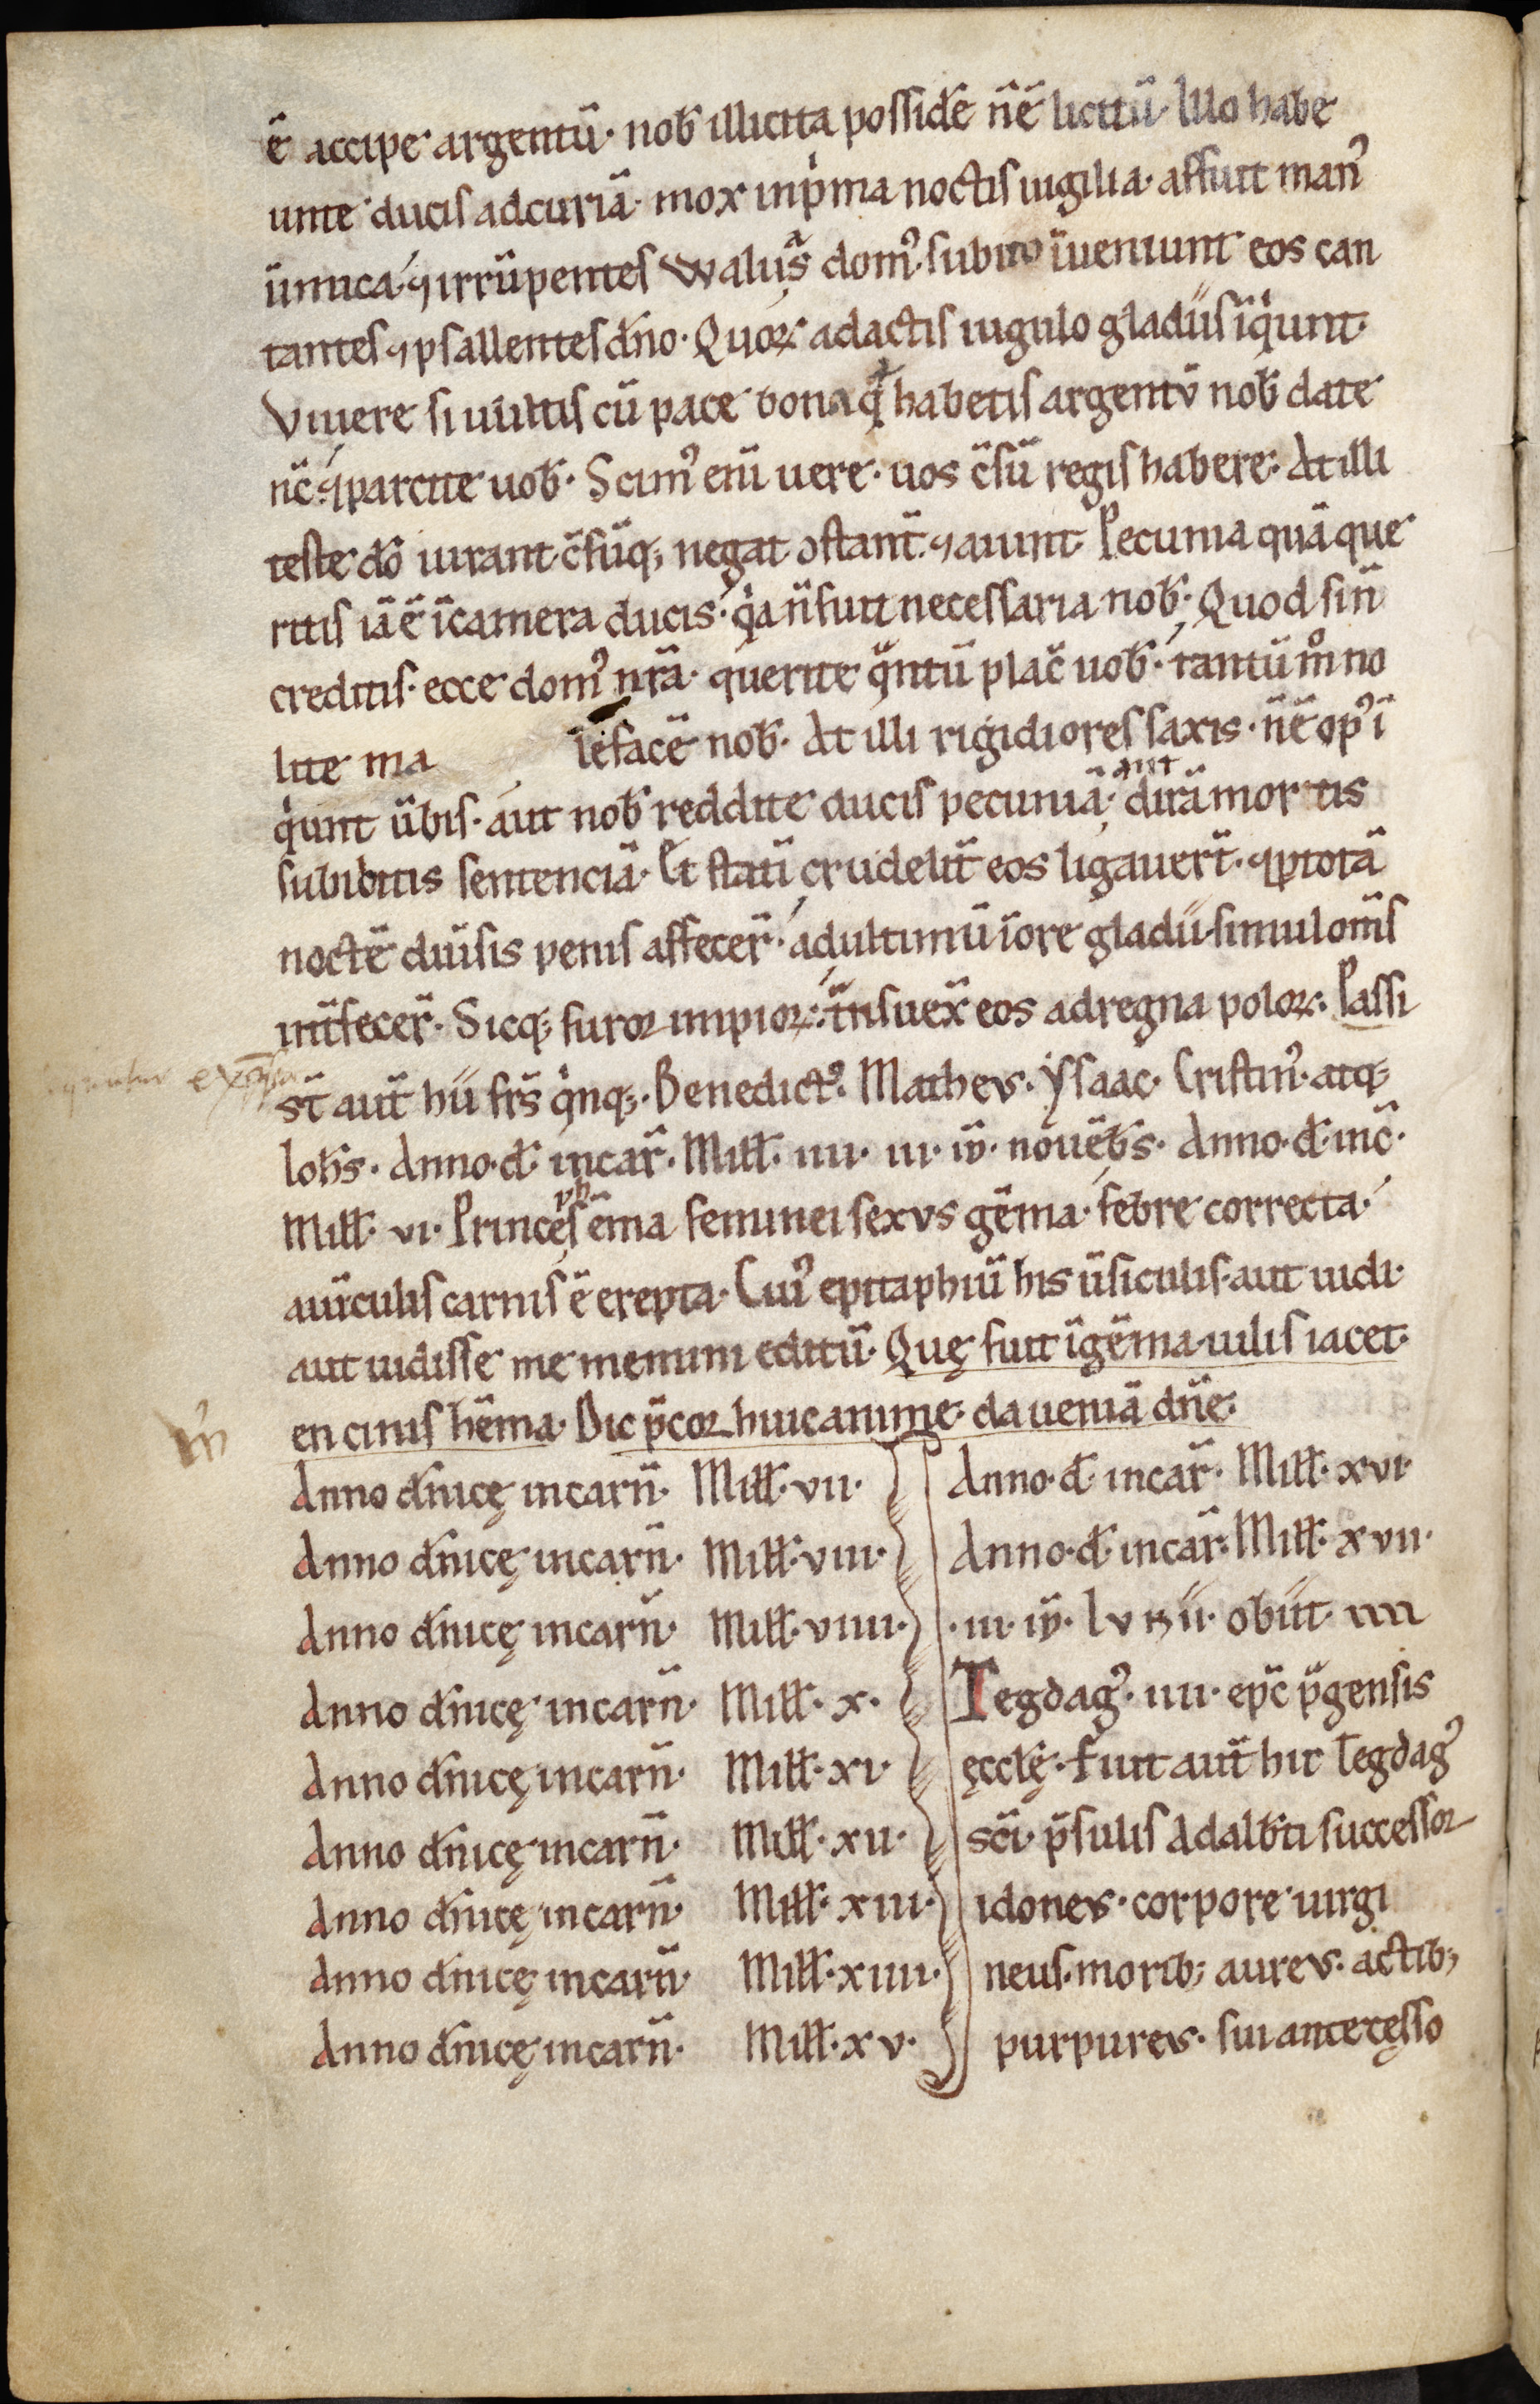 ē accipe argentū· nob̄ illicita possidē n̄ ē licitū· Illo habe
unte ducis ad curiā· mox in pͥma noctis uigilia· affuit manꝰ
iīmica· ⁊ irrūpentes ualuaſ domꝰ· subito īueniunt eos can
tantes ⁊ psallentes dn̄o· Quoꝝ adactis iugulo gladiis īqͥunt·
Viuere si uultis cū pace bona qͣ habetis argentū nob̄ date
nc̄· ⁊ parcite uob̄· Scimꝰ eni uere· uos c̄sū regis habere· At illi
teste dō iurant c̄sūq; negāt ↄstant̄· ⁊ aiunt Pecunia quā que
ritis iā ē ī camera ducis· qͥa n̄ fuit necessaria nob̄· Quod si n̄
creditis· ecce domꝰ nr̄a· querite qͣntū plac̄ uob̄· tantū mͦ no
lite ma lefacē nob̄· At illi rigidiores saxis· n̄ ē opꝰ ī
qͥunt ūbis· aut nob̄ reddite ducis pecuniā· aut dirā mortis
subibitis sentenciā· Et statī crudelit̄ eos ligauer̄t· ⁊ ꝑ totā
noctē diūsis penis affecer̄· ad ultimū ī ore gladii simul om̄s
int̄fecer̄· Sicq; furor impioꝝ· tͣnsuex̄ eos ad regna poloꝝ· Passi
st̄ aut̄ hii frs̄ qͥnq;· Benedictꝰ· Mathevs· Ysaac· Cristinꝰ· atq;
Ioh̄s· Anno· d̄· incar̄· Mill̄· iiii· iii· iđ· nouēb̄s· Anno· d̄· inc̄·
Mill̄· vi· Princeps ēma feminei sexvs gēma· febre correcta·
a uīculis carnis ē erepta· Cuiꝰ epitaphiū his ūsiculis· aut uidi·
aut uidisse me memini editū· Quę fuit ī gēma· uilis iacet·
en cinis hēma· Dic p̄cor huic anime· da ueniā dn̄e·
Anno dn̄icę incarn̄· Mill̄· vii·
Anno dn̄icę incarn̄· Mill̄· viii·
Anno dn̄icę incarn̄· Mill̄· viiii·
Anno dn̄icę incarn̄· Mill̄· x·
Anno dn̄icę incarn̄· Mill̄· xi·
Anno dn̄icę incarn̄· Mill̄· xii·
Anno dn̄icę incarn̄· Mill̄· xiii·
Anno dn̄icę incarn̄· Mill̄· xiiii·
Anno dn̄icę incarn̄· Mill̄· xv·
Anno· d̄· incar̄· Mill̄· xvi·
Anno· d̄· incar̄· Mill̄· xvii·
·iii· iđ· Ivnii· obiit
Tegdagꝰ· iiii· epc̄ pͣgensis
ęccl̄ę· Fuit aut̄ hic Tegdagꝰ
sci· p̄sulis Adalb̄ti successor
idonevs· corpore uirgi
neus· morib; aurevs· actib;
purpurevs· sui antecęsso